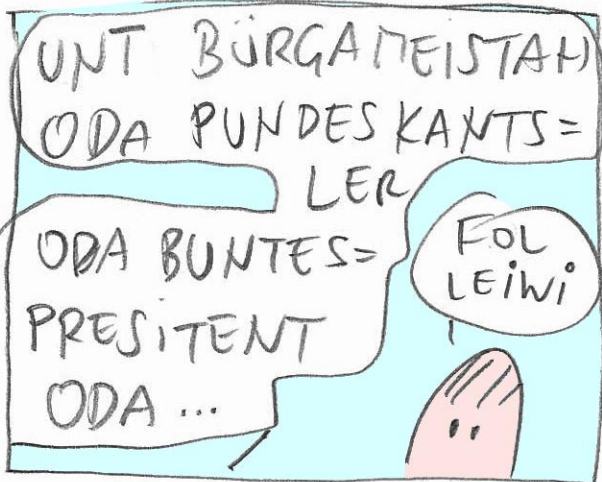 UNT BÜRGAMEISTAH
ODA PUNDESKANTS=
LER
ODA BUNTES=
PRESITENT
ODA ...
FOL
LEIWI